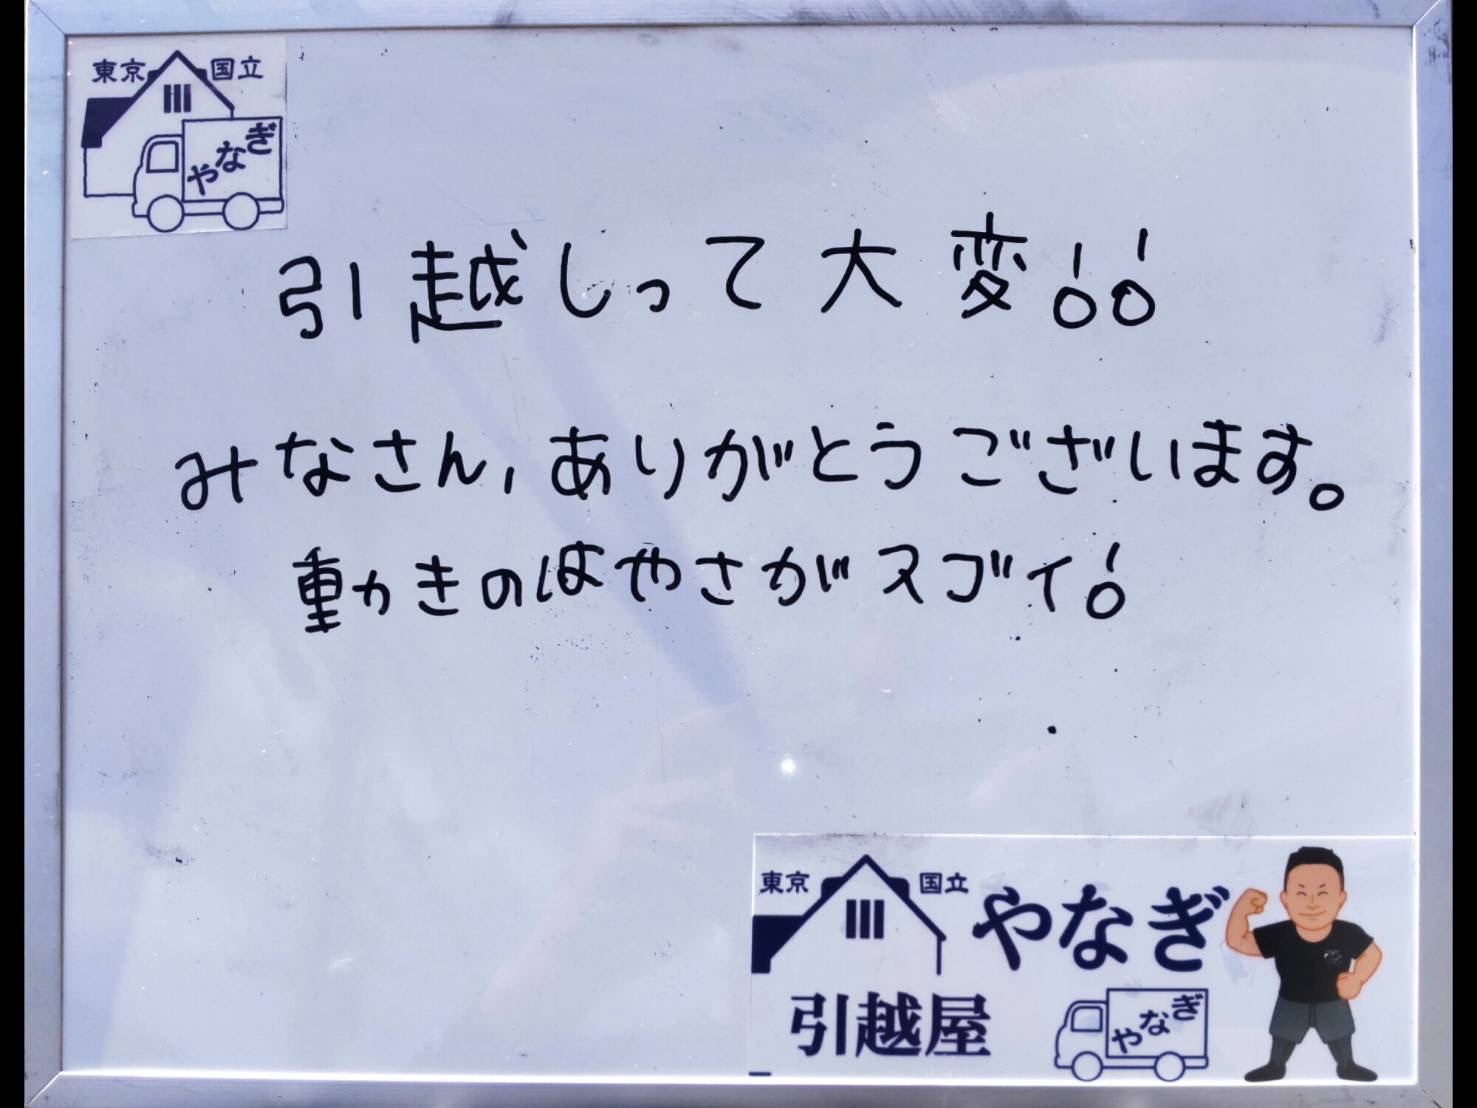 東京 国立
やなぎ
引越しって大変!!
みなさん、ありがとうございます。
動きのはやさがスゴイ!
東京 国立 やなぎ
引越屋
やなぎ